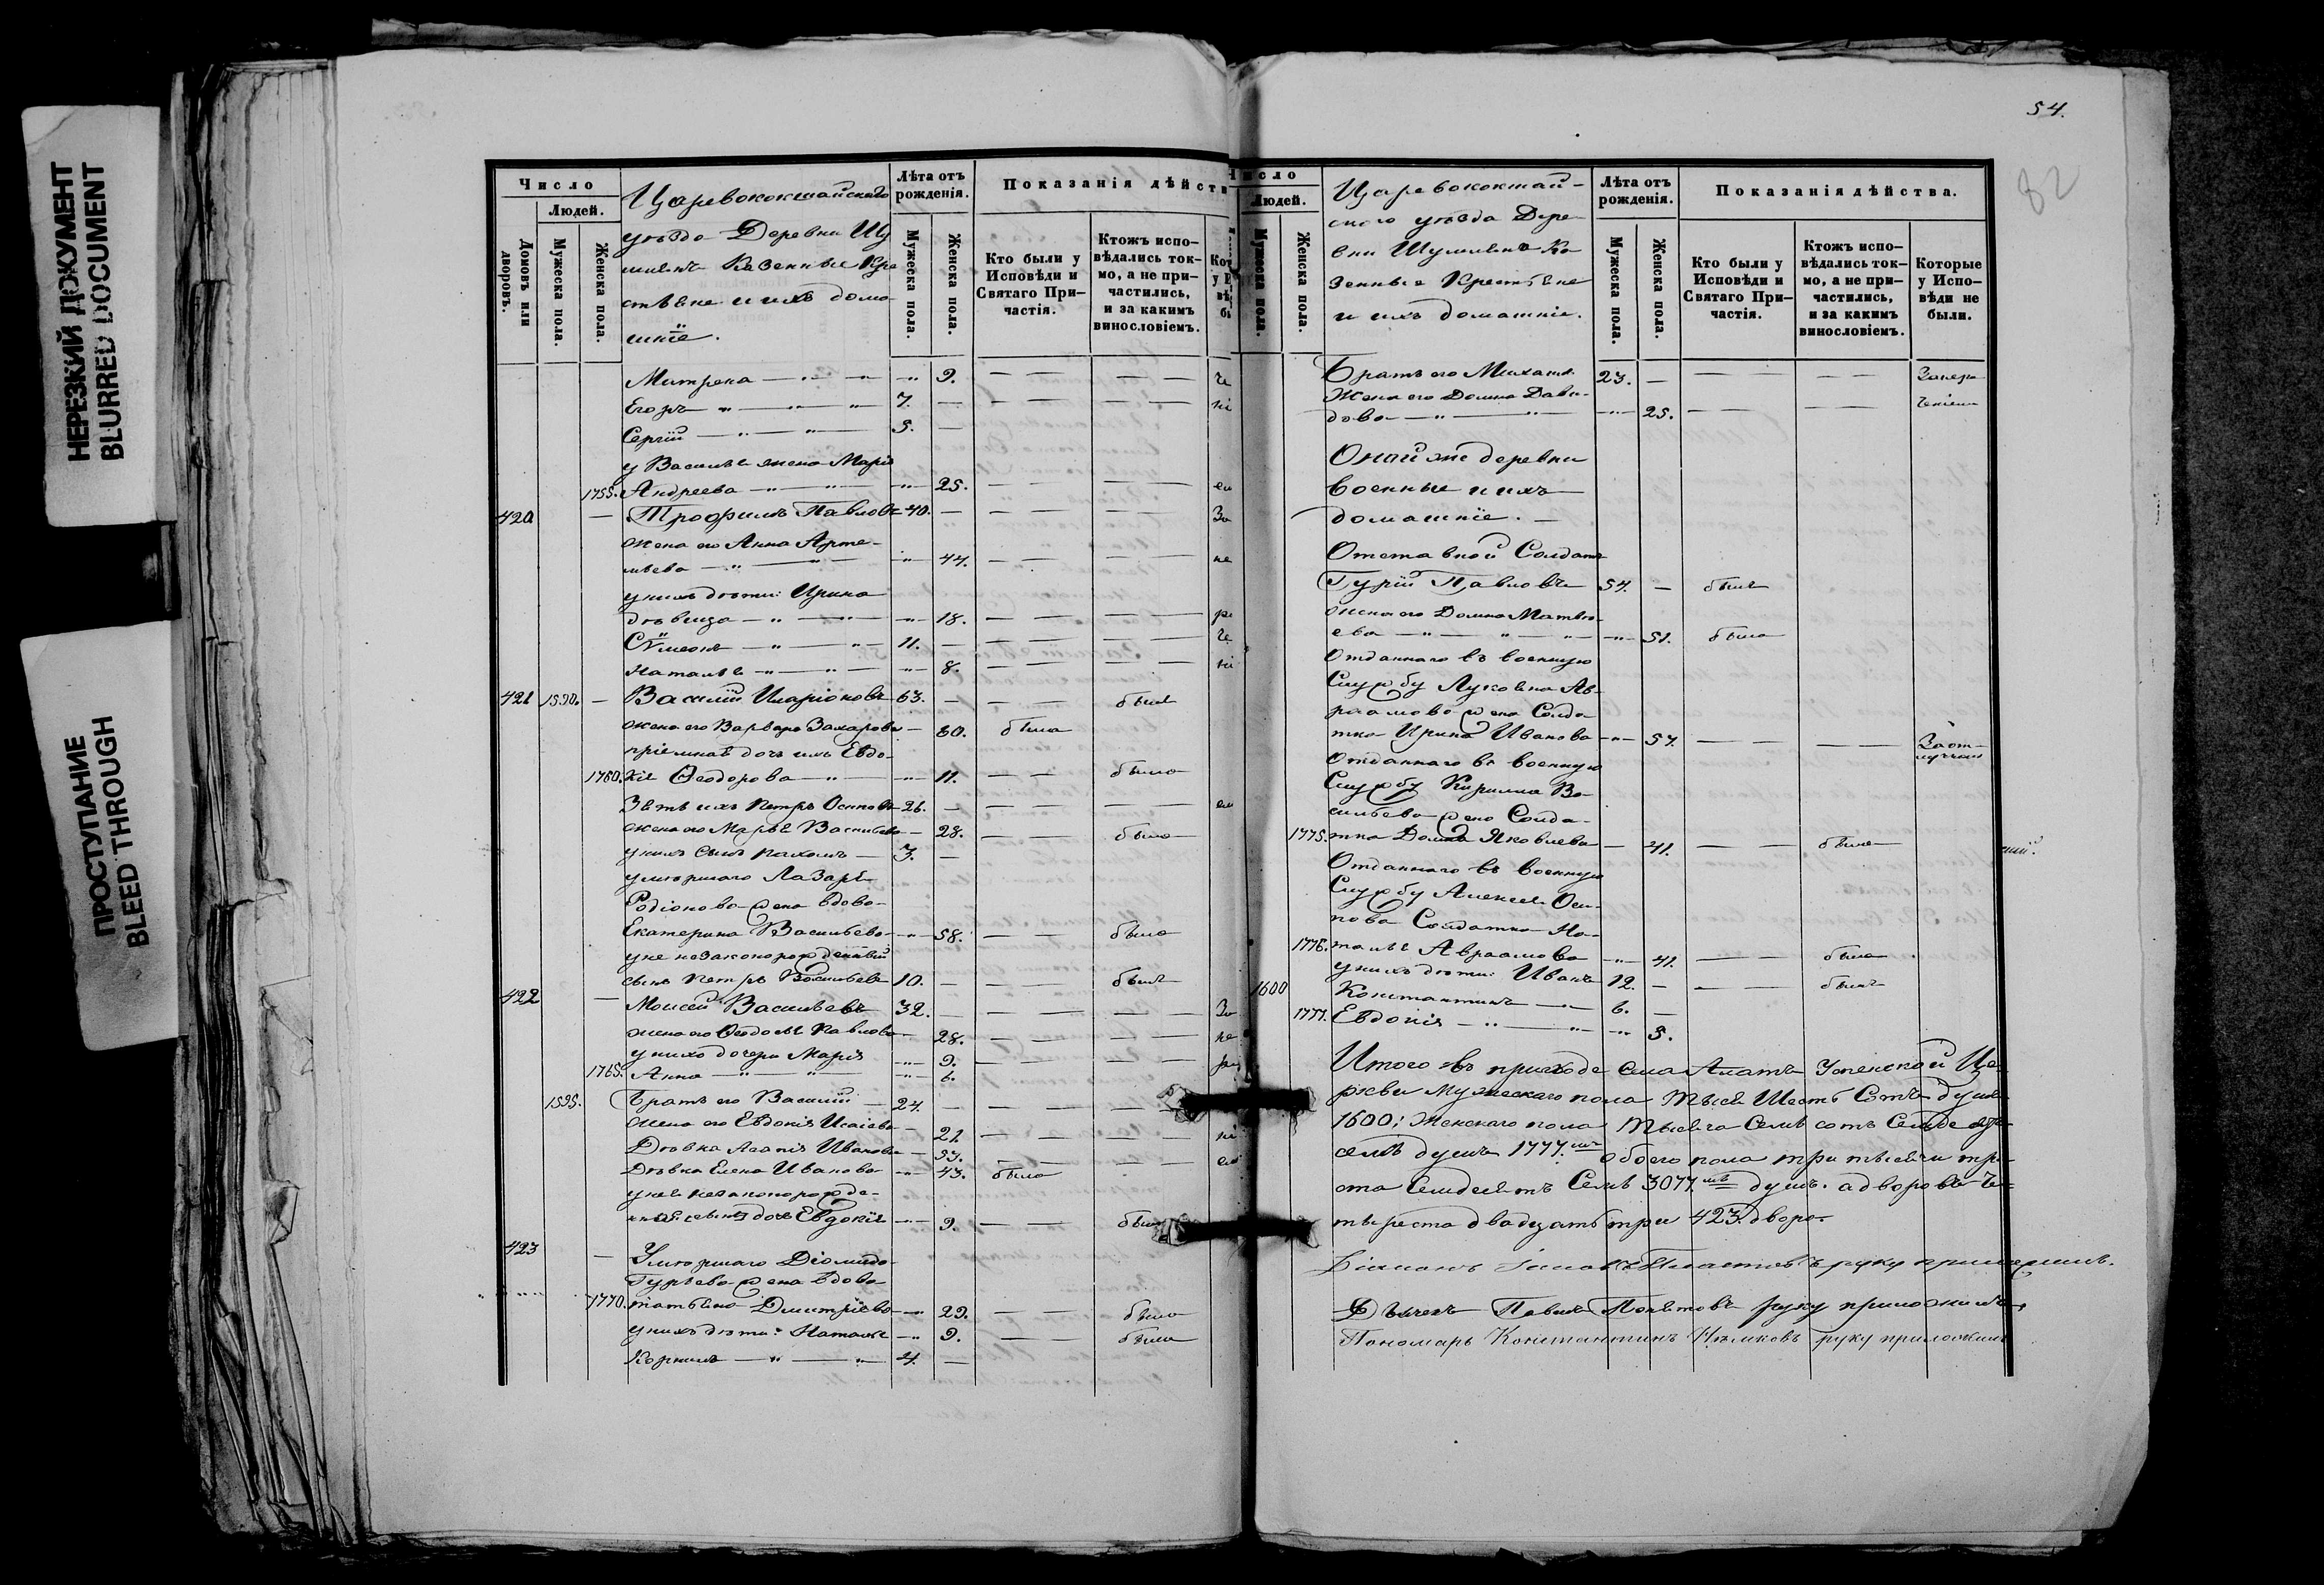 НЕРЕЗКИЙ ДОКУМЕНТ
BLURRED DOCUMENT
ПРОСТУПАНИЕ
BLEED THROUGH
Число
Людей.
Домовъ или дворовъ.
Мужеска пола.
Женска пола.
Царевококшайскаго
уѣзда Деревни Шу
Казенные Кре
стьяне и ихъ дома
шніе.
Лѣта отъ рожденія.
Мужеска пола.
Женска пола.
Показанія дѣйств
Кто были у Исповѣди и Святаго При-частія.
Ктожъ испо-вѣдались ток-мо, а не при-частились, и за какимъ винословіемъ.
Матрена — 9.
Егоръ — 7.
Сергій — 5.
у Василья жена Марія
1755. Андреева — 25.
420 Трофимъ Павловъ 40.
жена его Анна Арте-
мьева — 44.
у нихъ дѣти: Ирина
дѣвица — 18.
Сѵмеонъ — 11.
Наталья — 8.
421 1590. Василій Иларіоновъ 63. — былъ
жена его Варвара Захарова — 60. была
пріемная дочь ихъ Евдо-
1760. кія Ѳеодорова — 11. — была
Зять ихъ Петръ Осиповъ 26.
жена его Марья Васильева — 28. — была
у нихъ сынъ Пахомъ — 3.
умершаго Лазаря
Родіонова жена вдова
Екатерина Васильева — 58. — была
у нее незаконорожденный
сынъ Петръ Васильевъ 10. — былъ
422 Моисей Васильевъ 32.
жена его Ѳеодосья Павлова — 28.
у нихъ дочери Марія — 9.
1765. Анна — 6.
1595. Братъ его Василій — 24.
жена его Евдокія Исаіева — 21.
Дѣвка Агапія Иванова
Дѣвка Елена Иванова — 43. была
у нея незаконорожде-
дочь Евдокія — 9. — была
423 Умершаго Діомида
Гурьева жена вдова
1770. Татьяна Дмитріева — 29. — была
у нихъ дѣти: Наталья — 9. — была
Корнилъ — 4.
54.
82
Число
Людей.
Мужеска пола.
Женска пола.
Царевококшай-
скаго уѣзда Дере
вни Ка
зенные Крестьяне
и ихъ домашніе.
Лѣта отъ рожденія.
Мужеска пола.
Женска пола.
Показанія дѣйства.
Кто были у Исповѣди и Святаго При-частія.
Ктожъ испо-вѣдались ток-мо, а не при-частились, и за какимъ винословіемъ.
Которые у Испо-вѣди не были.
Братъ его Михаилъ 23.
Жена его Домна Давы-
дова — 25.
Оной же деревни
военные и ихъ
домашніе.
Отставной Солдатъ
Гурій Павловъ 54. — былъ
жена его Домна Матвѣ-
ева — 51. была
Отданнаго въ военную
Службу Лукояна Ав-
раамова жена Солда-
тка Ирина Иванова — 57. — За от-
лучкою
Отданнаго въ военную
Службу Кирилла Ва-
сильева жена Солда-
1775. тка Домна Яковлева — 41. — была
Отданнаго въ военную
Службу Алексея Оси-
пова Солдатка На-
1776. талья Авраамова — 41. — была
у нихъ дѣти: Иванъ 12. — былъ
1600 Константинъ — 6.
1777. Евдокія — 5.
Итого въ приходе села Алатъ Успенской Це-
ркви мужескаго пола тысяча Шесть Сотъ душъ
1600; женскаго пола тысяча Семь сотъ Семьдесятъ
семь душъ 1777. обоего пола три тысячи три-
ста Семдесятъ Семь 3077. душъ. а дворовъ че-
тыреста двадцать три 423 двора.
руку приложилъ.
Дьячекъ Павелъ руку приложилъ
Пономарь Константинъ руку приложилъ